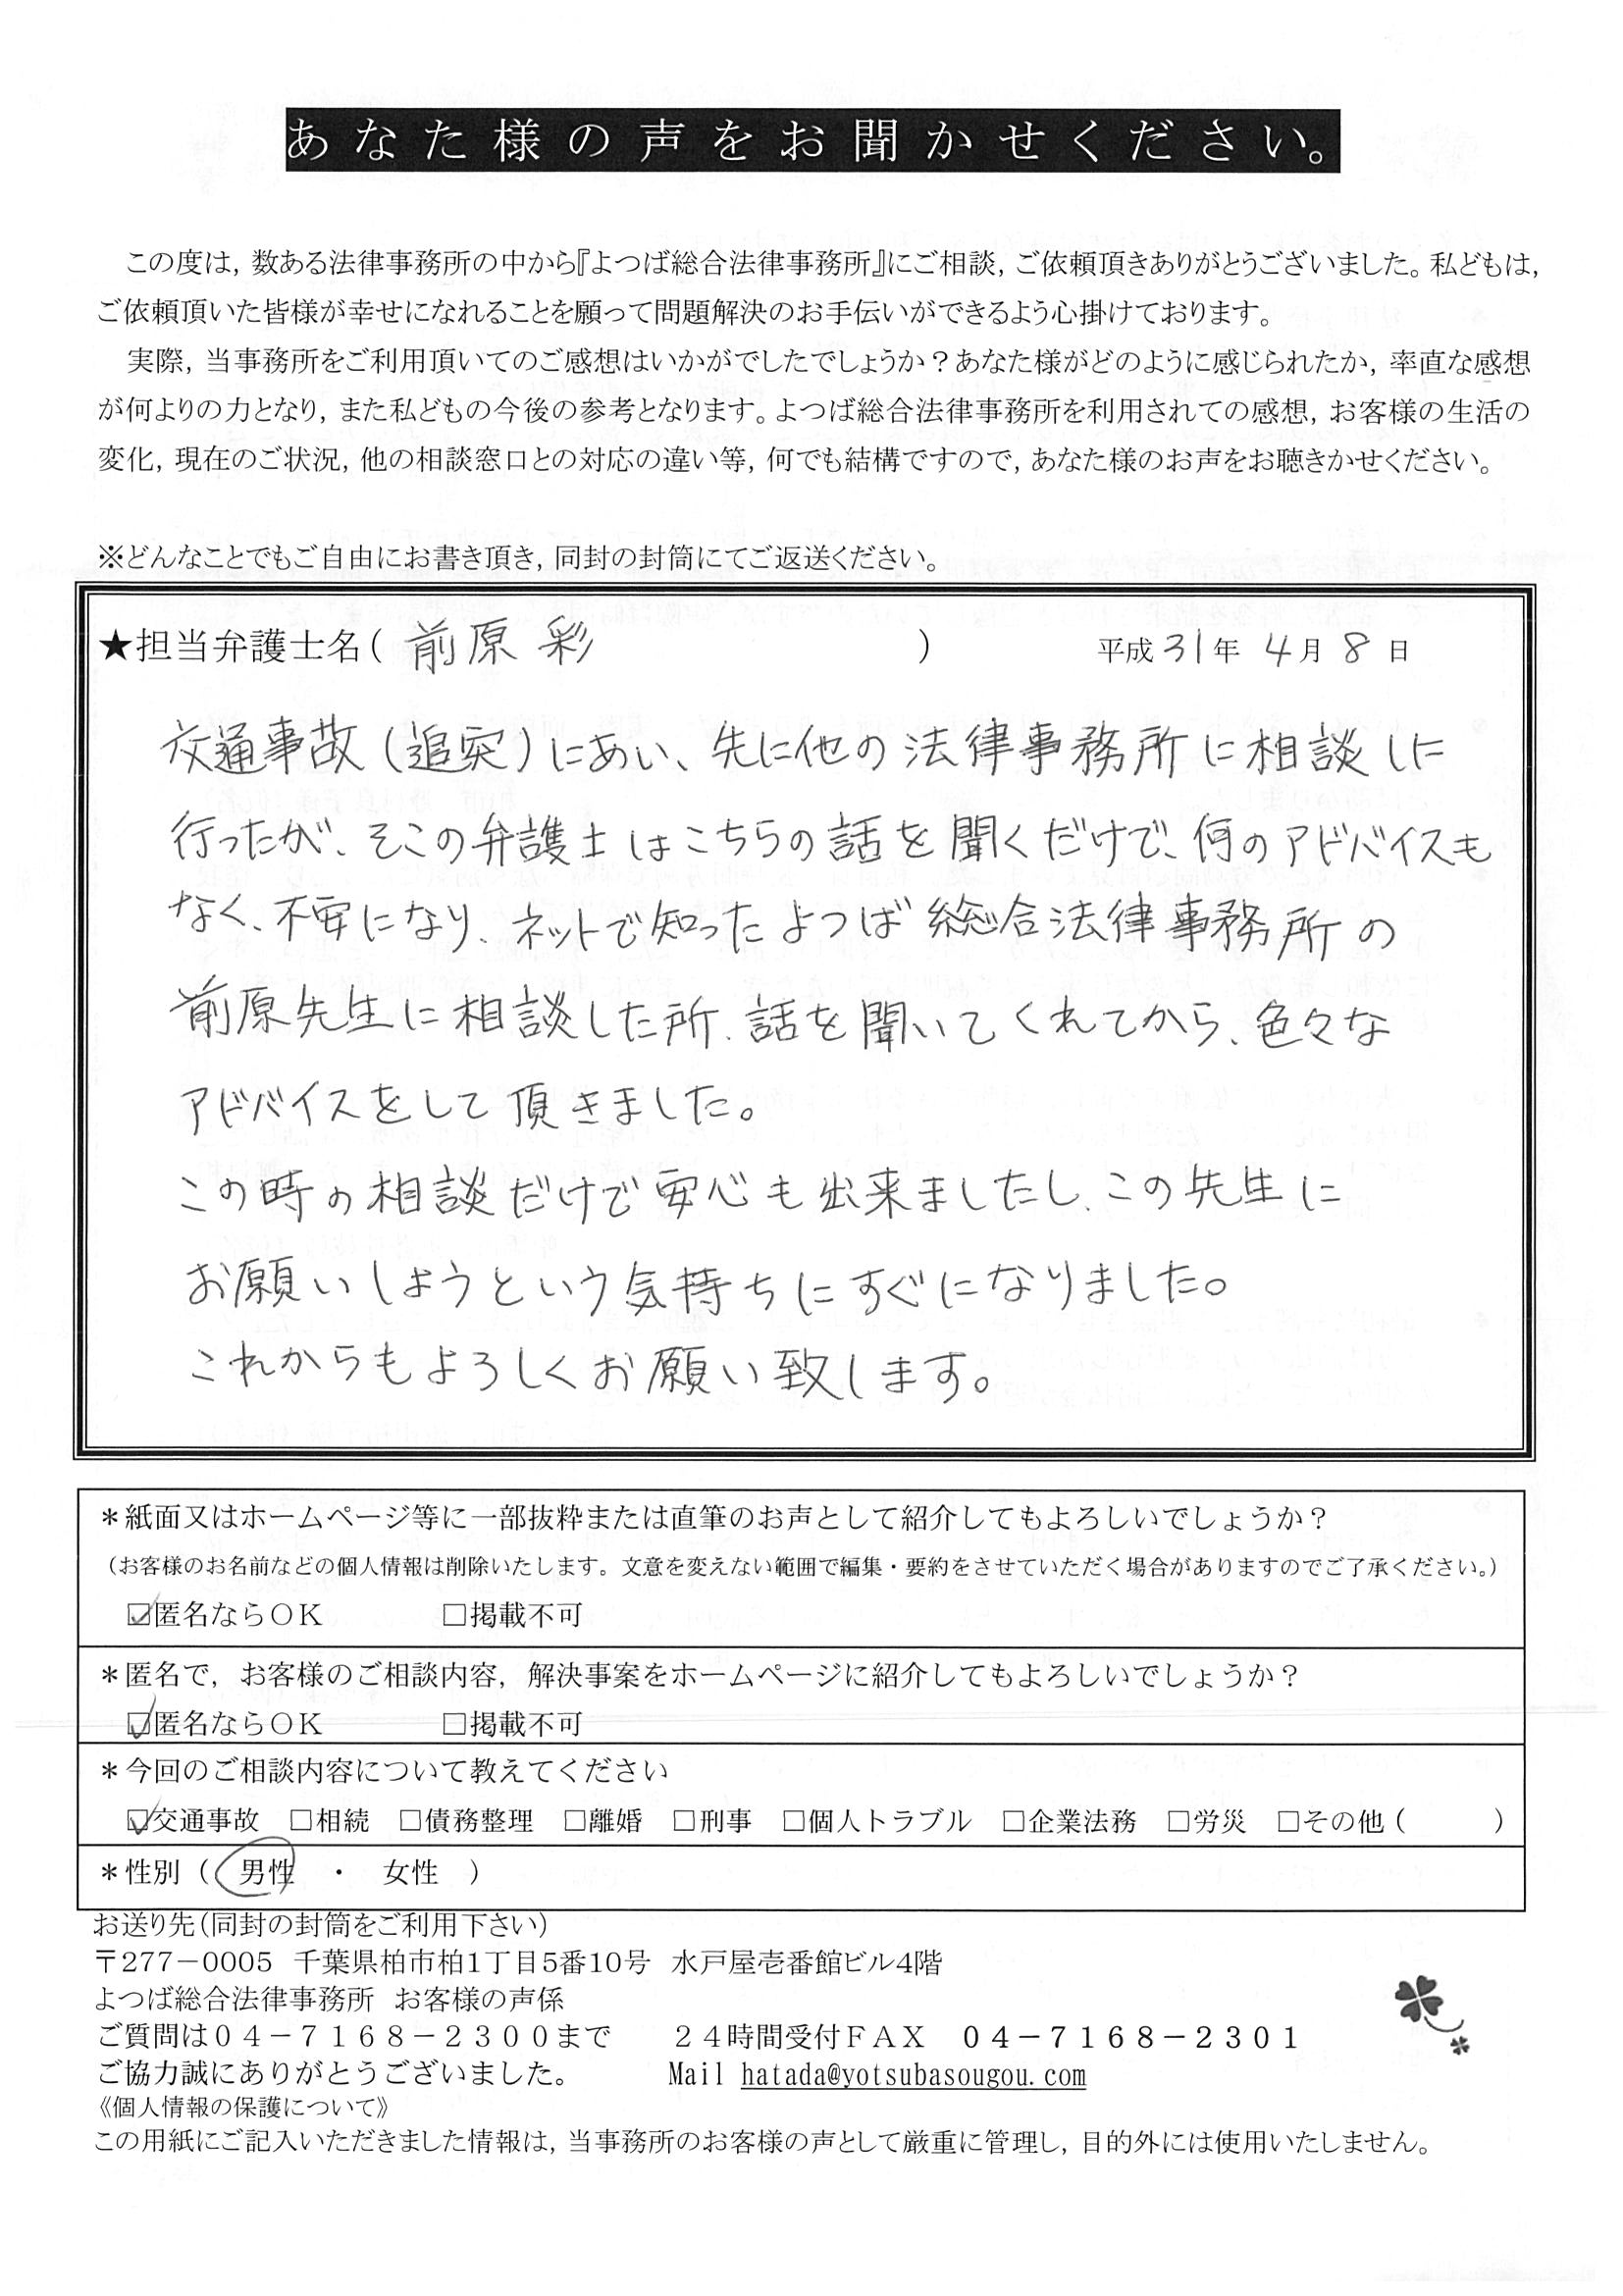 あなた様の声をお聞かせください。
この度は，数ある法律事務所の中から『よつば総合法律事務所』にご相談，ご依頼頂きありがとうございました。私どもは，
ご依頼頂いた皆様が幸せになれることを願って問題解決のお手伝いができるよう心掛けております。
実際，当事務所をご利用頂いてのご感想はいかがでしたでしょうか？あなた様がどのように感じられたか，率直な感想
が何よりの力となり，また私どもの今後の参考となります。よつば総合法律事務所を利用されての感想，お客様の生活の
変化，現在のご状況，他の相談窓口との対応の違い等，何でも結構ですので，あなた様のお声をお聴きかせください。
※どんなことでもご自由にお書き頂き，同封の封筒にてご返送ください。
★担当弁護士名（ 前原 彩 ） 平成 31 年 4 月 8 日
交通事故（追突）にあい、先に他の法律事務所に相談しに
行ったが、そこの弁護士はこちらの話を聞くだけで、何のアドバイスも
なく、不安になり、ネットで知ったよつば総合法律事務所の
前原先生に相談した所、話を聞いてくれてから、色々な
アドバイスをして頂きました。
この時の相談だけで安心も出来ましたし、この先生に
お願いしようという気持ちにすぐになりました。
これからもよろしくお願い致します。
＊紙面又はホームページ等に一部抜粋または直筆のお声として紹介してもよろしいでしょうか？
（お客様のお名前などの個人情報は削除いたします。文意を変えない範囲で編集・要約をさせていただく場合がありますのでご了承ください。）
☑匿名ならＯＫ □掲載不可
＊匿名で，お客様のご相談内容，解決事案をホームページに紹介してもよろしいでしょうか？
☑匿名ならＯＫ □掲載不可
＊今回のご相談内容について教えてください
☑交通事故 □相続 □債務整理 □離婚 □刑事 □個人トラブル □企業法務 □労災 □その他（ ）
＊性別（ 男性 ・ 女性 ）
お送り先（同封の封筒をご利用下さい）
〒277－0005 千葉県柏市柏1丁目5番10号 水戸屋壱番館ビル4階
よつば総合法律事務所 お客様の声係
ご質問は０４－７１６８－２３００まで ２４時間受付ＦＡＸ ０４－７１６８－２３０１
ご協力誠にありがとうございました。 Mail hatada@yotsubasougou.com
《個人情報の保護について》
この用紙にご記入いただきました情報は，当事務所のお客様の声として厳重に管理し，目的外には使用いたしません。